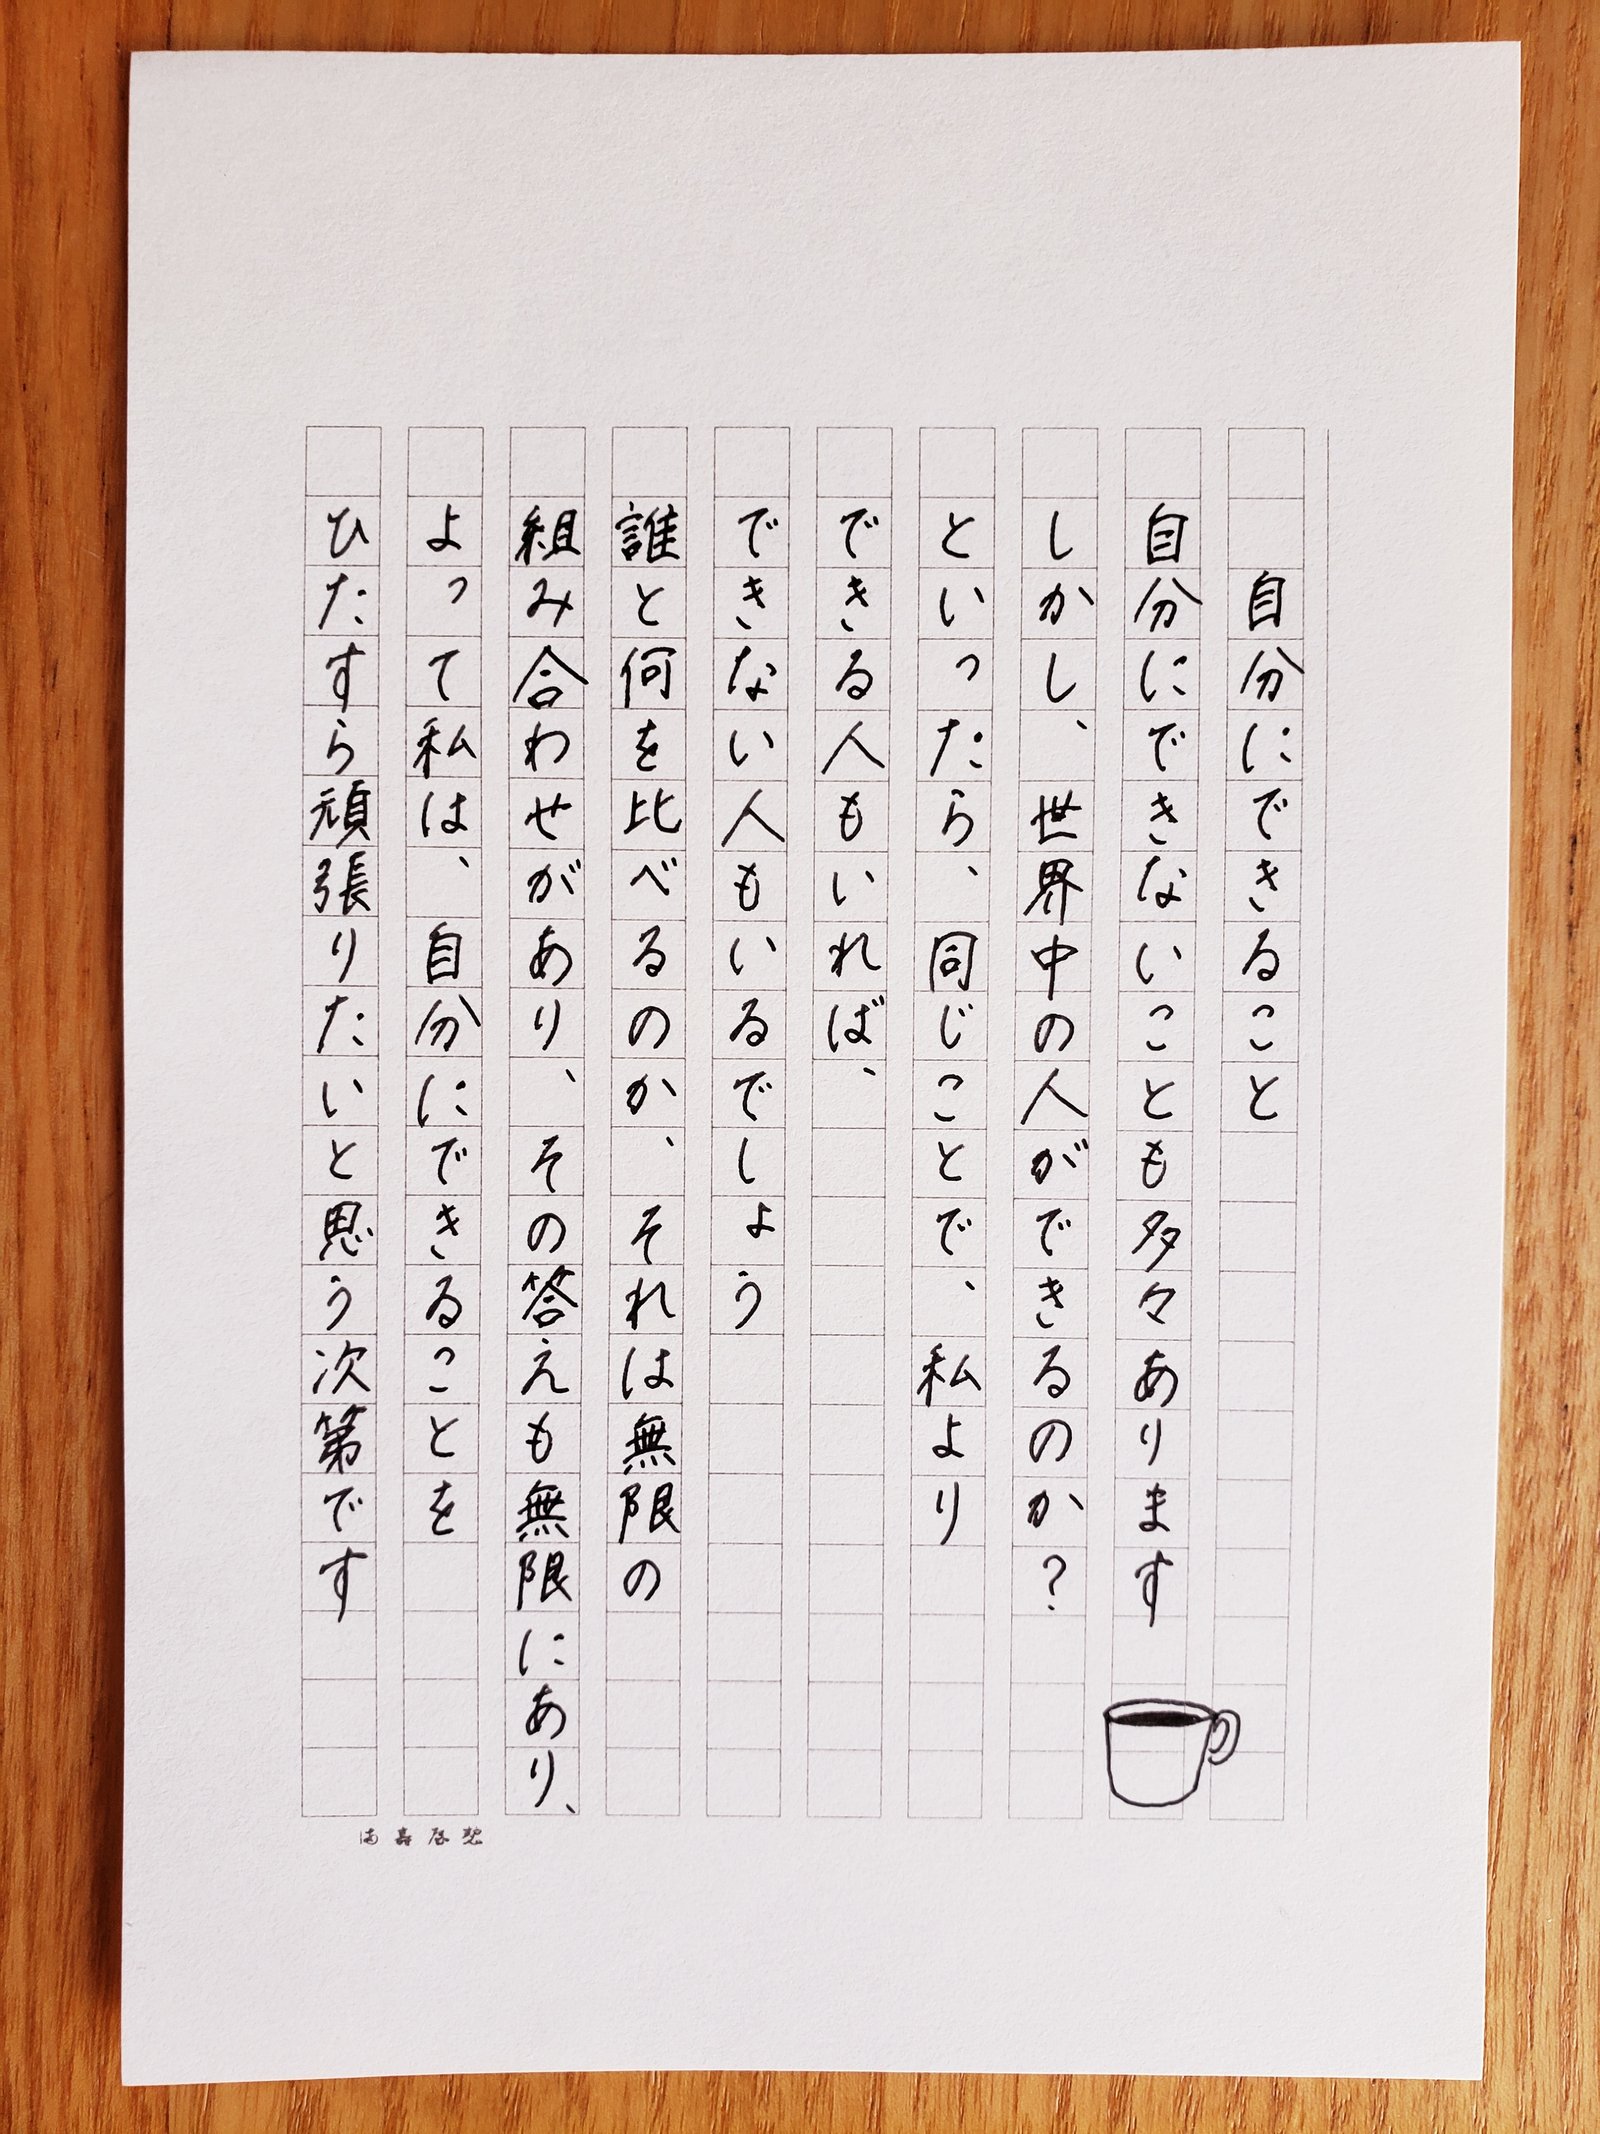 自分にできること
自分にできないことも多々あります
しかし、世界中の人ができるのか？
といったら、同じことで、私より
できる人もいれば、
できない人もいるでしょう
誰と何を比べるのか、それは無限の
組み合わせがあり、その答えも無限にあり、
よって私は、自分にできることを
ひたすら頑張りたいと思う次第です